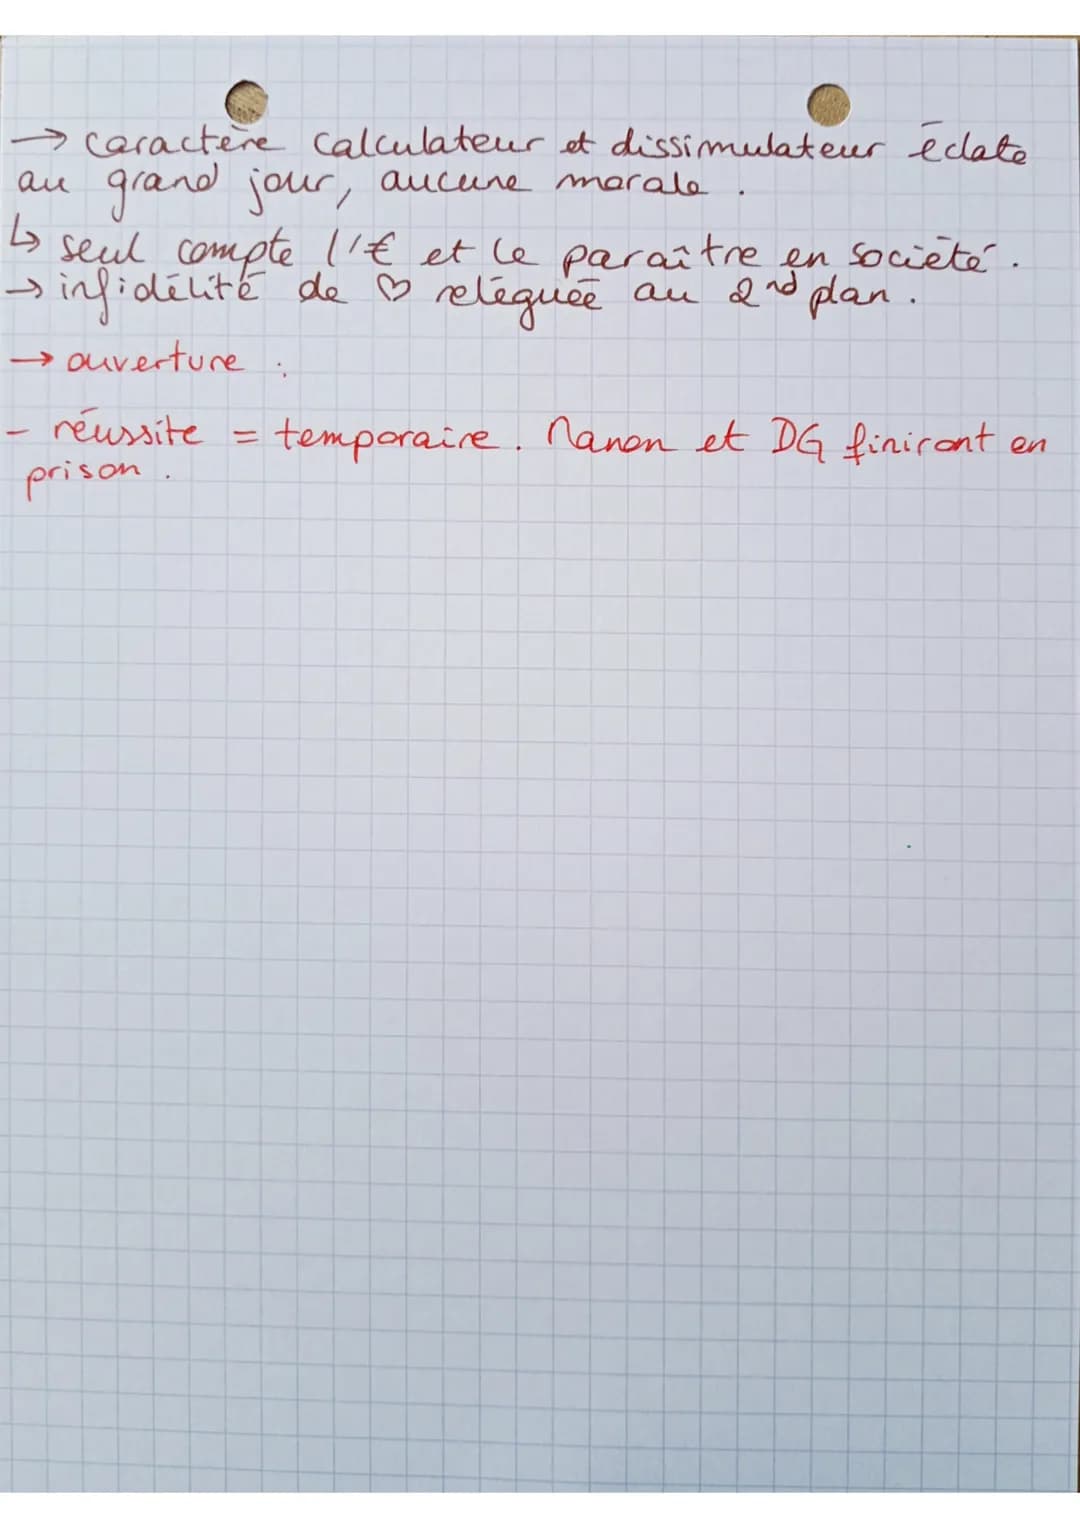 → caractère calculateur et dissimulateur éclate
au grand jour, aucune morale .
↳ seul compte l'€ et le paraître en société .
→ infidélité de ♡ reléguée au 2nd plan .
→ ouverture :
- réussite = temporaire . Manon et DG finiront en
prison .